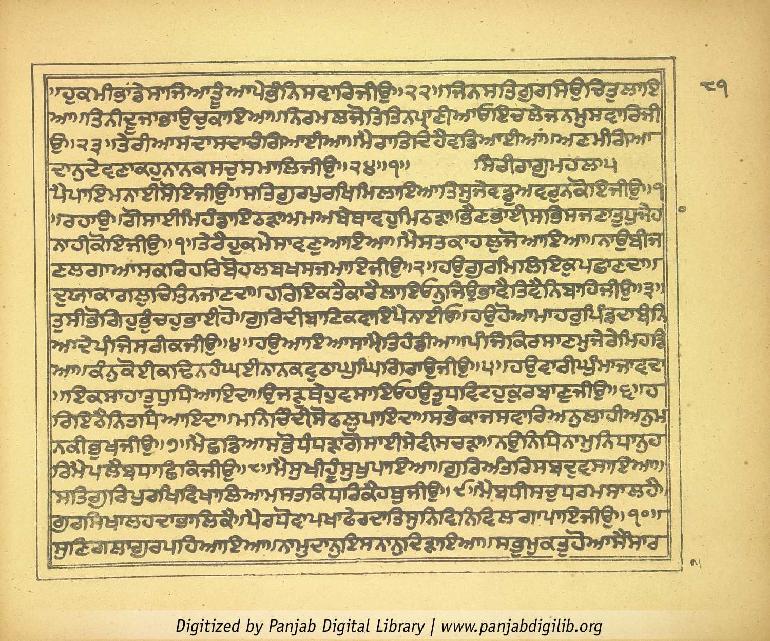 ੮੧
॥ਹੁਕਮੀਭਾਂਡੇਸਾਜਿਆਤੂੰਆਪੇਭੰਨਿਸਵਾਰਿਜੀਉ॥੨੨॥ਜਿਨਸਤਿਗੁਰਸਿਉਚਿਤੁਲਾਇ
ਆ॥ਤਿਨੀਦੂਜਾਭਾਉਚੁਕਾਇਆ॥ਨਿਰਮਲਜੋਤਿਤਿਨਪ੍ਰਾਣੀਆਓਇਚਲੇਜਨਮੁਸਵਾਰਿਜੀ
ਉ॥੨੩॥ਤੇਰੀਆਸਦਾਸਦਾਚੰਗਿਆਈਆ॥ਮੈਰਾਤਿਦਿਹੈਵਡਿਆਈਆਂ॥ਅਣਮੰਗਿਆ
ਦਾਨੁਦੇਵਣਾਕਹੁਨਾਨਕਸਚੁਸਮਾਲਿਜੀਉ॥੨੪॥੧॥ ਸਿਰੀਰਾਗੁਮਹਲਾ੫
ਪੈਪਾਇਮਨਾਈਸੋਇਜੀਉ॥ਸਤਿਗੁਰਪੁਰਖਿਮਿਲਾਇਆਤਿਸੁਜੇਵਡੁਅਵਰੁਨਕੋਇਜੀਉ॥੧
॥ਰਹਾਉ॥ਗੋਸਾਈਮਿਹੰਡਾਇਠੜਾ॥ਅਮਅਬੇਥਾਵਹੁਮਿਠੜਾ॥ਭੈਣਭਾਈਸਭਿਸਜਣਾਤੁਧੁਜੇਹਾ
ਨਾਹੀਕੋਇਜੀਉ॥੧॥ਤੇਰੈਹੁਕਮੇਸਾਵਣੁਆਇਆ॥ਮੈਸਤਕਾਹਲੁਜੋਆਇਆ॥ਨਾਉਬੀਜ
ਣਲਗਾਆਸਕਰਿਹਰਿਬੋਹਲਬਖਸਜਮਾਇਜੀਉ॥੨॥ਹਉਗੁਰਮਿਲਿਇਕੁਪਛਾਣਦਾ॥
ਦੁਯਾਕਾਗਲੁਚਿਤਿਨਜਾਣਦਾ॥ਹਰਿਇਕਤੈਕਾਰੈਲਾਇਓਨੁਜਿਉਭਾਵੈਤਿਵੈਨਿਬਾਹਿਜੀਉ॥੩॥
ਤੁਸੀਭੋਗਿਹੁਭੁੰਚਹੁਭਾਈਹੋ॥ਗੁਰਿਦੀਬਾਣਿਕਵਾਇਪੈਨਾਈਓ॥ਹਉਹੋਆਮਾਹਰੁਪਿੰਡਦਾਬੰਨਿ
ਆਦੇਪੰਜਿਸਰੀਕਜੀਉ॥੪॥ਹਉਆਇਆਸਾਮ੍ਹੈਤਿਹੰਡੀਆ॥ਪੰਜਿਕਿਰਸਾਣਮੁਜੇਰੇਮਿਹਡਿ
ਆ॥ਕੰਨੁਕੋਈਕਢਿਨਹੰਘਈਨਾਨਕਵੁਠਾਘੁਘਿਗਿਰਾਉਜੀਉ॥੫॥ਹਉਵਾਰੀਘੁੰਮਾਜਾਵਦਾ
॥ਇਕਸਾਹਾਤੁਧੁਧਿਆਇਦਾ॥ਉਜੜੁਥੇਹੁਵਸਾਇਓਹਉਤੁਧਵਿਟਹੁਕੁਰਬਾਣੁਜੀਉ॥੬॥ਹ
ਰਿਇਠੈਨਿਤਧਿਆਇਦਾ॥ਮਨਿਚਿੰਦੀਸੋਫਲੁਪਾਇਦਾ॥ਸਭੇਕਾਜਸਵਾਰਿਅਨੁਲਾਹੀਅਨੁਮ
ਨਕੀਭੁਖਜੀਉ॥੭॥ਮੈਛਡਿਆਸਭੋਧੰਧੜਾ॥ਗੋਸਾਈਸੇਵੀਸਚੜਾ॥ਨਉਨਿਧਿਨਾਮੁਨਿਧਾਨੁਹ
ਰਿਮੈਪਲੈਬਧਾਛਿਕਿਜੀਉ॥੮॥ਮੈਸੁਖੀਹੂੰਸੁਖੁਪਾਇਆ॥ਗੁਰਿਅੰਤਰਿਸਬਦੁਵਸਾਇਆ॥
ਸਤਿਗੁਰਿਪੁਰਖਿਵਿਖਾਲਿਆਮਸਤਕਿਧਰਿਕੈਹਥੁਜੀਉ॥੯॥ਮੈਬਧੀਸਚੁਧਰਮਸਾਲਹੈ॥
ਗੁਰਸਿਖਾਲਹਦਾਭਾਲਿਕੈ॥ਪੈਰਧੋਵਾਪਖਾਫੇਰਦਾਤਿਸੁਨਿਵਿਨਿਵਿਲਗਾਪਾਇਜੀਉ॥੧੦॥
ਸੁਣਿਗਲਾਗੁਰਪਹਿਆਇਆ॥ਨਾਮੁਦਾਨੁਇਸਨਾਨੁਦਿੜਾਇਆ॥ਸਭੁਮੁਕਤੁਹੋਆਸੈਂਸਾਰ
Digitized by Panjab Digital Library | www.panjabdigilib.org